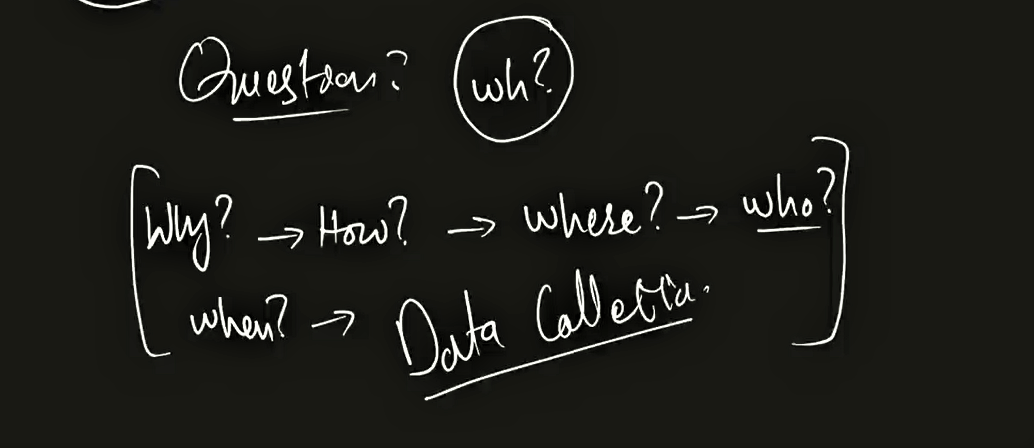 Question? wh?
Why? → How? → where? → who?
when? → Data Collection.